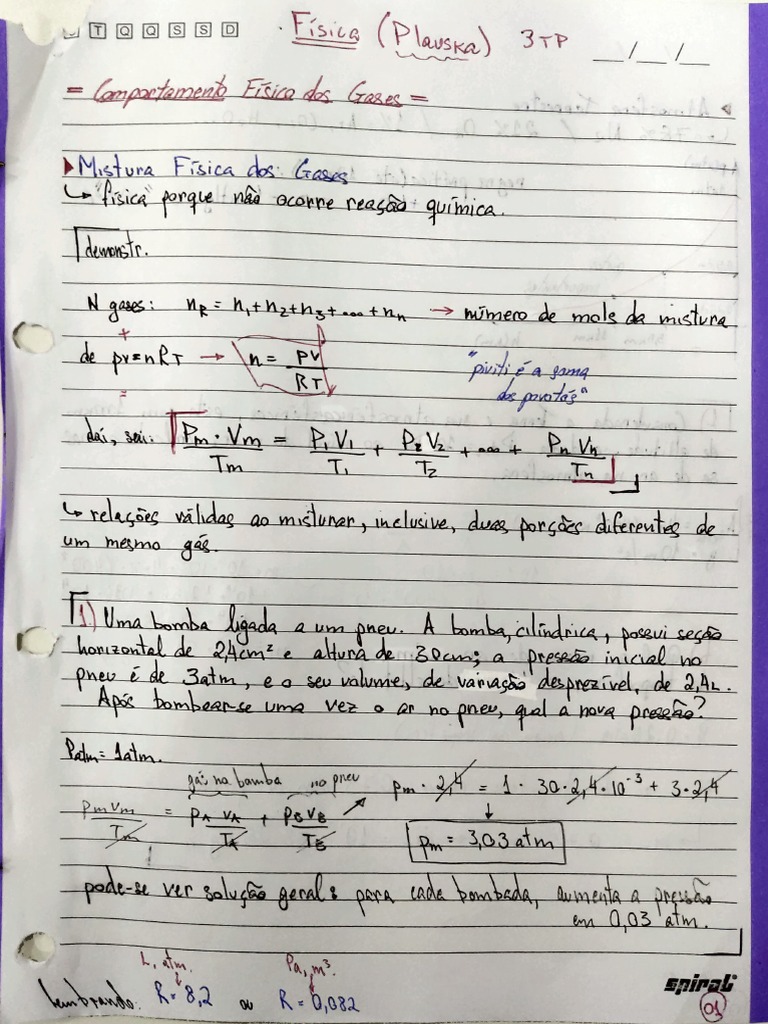 T Q Q S S D
Física (Plauska) 3TP __/__/__
= Comportamento Físico dos Gases =
Mistura Física dos Gases
↳ "física" porque não ocorre reação química.
demonstr.
N gases: nR = n1 + n2 + n3 + ... + nn → número de mols da mistura
+
de pv = nRT → n = PV / RT
"piviti é a soma
dos pavotás"
=
daí, sei: Pm · Vm / Tm = P1 V1 / T1 + P2 V2 / T2 + ... + Pn Vn / Tn
↳ relações válidas ao misturar, inclusive, duas porções diferentes de
um mesmo gás.
1.) Uma bomba ligada a um pneu. A bomba, cilíndrica, possui seção
horizontal de 2,4cm² e altura de 30cm; a pressão inicial no
pneu é de 3atm, e o seu volume, de variação desprezível, de 2,4L.
Após bombear-se uma vez o ar no pneu, qual a nova pressão?
Patm = 1atm.
gás na bomba no pneu
pm vm / Tm = pA vA / TA + pB vB / TB ↗ pm · 2,4 = 1 · 30 · 2,4 · 10⁻³ + 3 · 2,4
↓
pm = 3,03 atm
pode-se ver solução geral: para cada bombada, aumenta a pressão
em 0,03 atm.
L, atm. Pa, m³.
lembrando: R = 8,2 ou R = 0,082
spiral
01